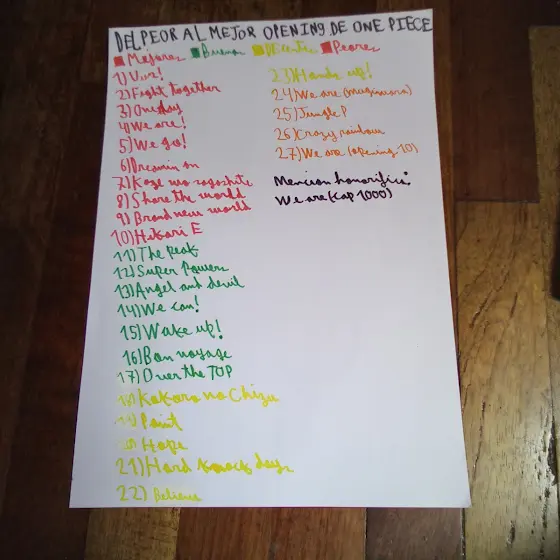 DEL PEOR AL MEJOR OPENING DE ONE PIECE
Mejores Buenos Decentes Peores
1) Uuz!
2) Fight together
3) One day
4) We are!
5) We go!
6) Dreamin on
7) Kaze wo sagashite
8) Share the world
9) Brand new world
10) Hikari E
11) The peak
12) Super Powers
13) Angel and devil
14) We can!
15) Wake up!
16) Bon voyage
17) Over the TOP
18) Kokoro no Chizu
19) Paint
20) Hope
21) Hard knock days
22) Believe
23) Hands up!
24) We are (mugiwara)
25) Jungle P
26) Crazy rainbow
27) We are (opening 10)
Mencion honorifica:
We are (cap 1000)